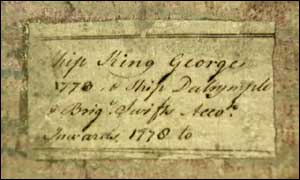 Ship King George
1778 & Ship Dalrymple
& Brigⁿ Swifts Accoᵗˢ
Inwards, 1778 to